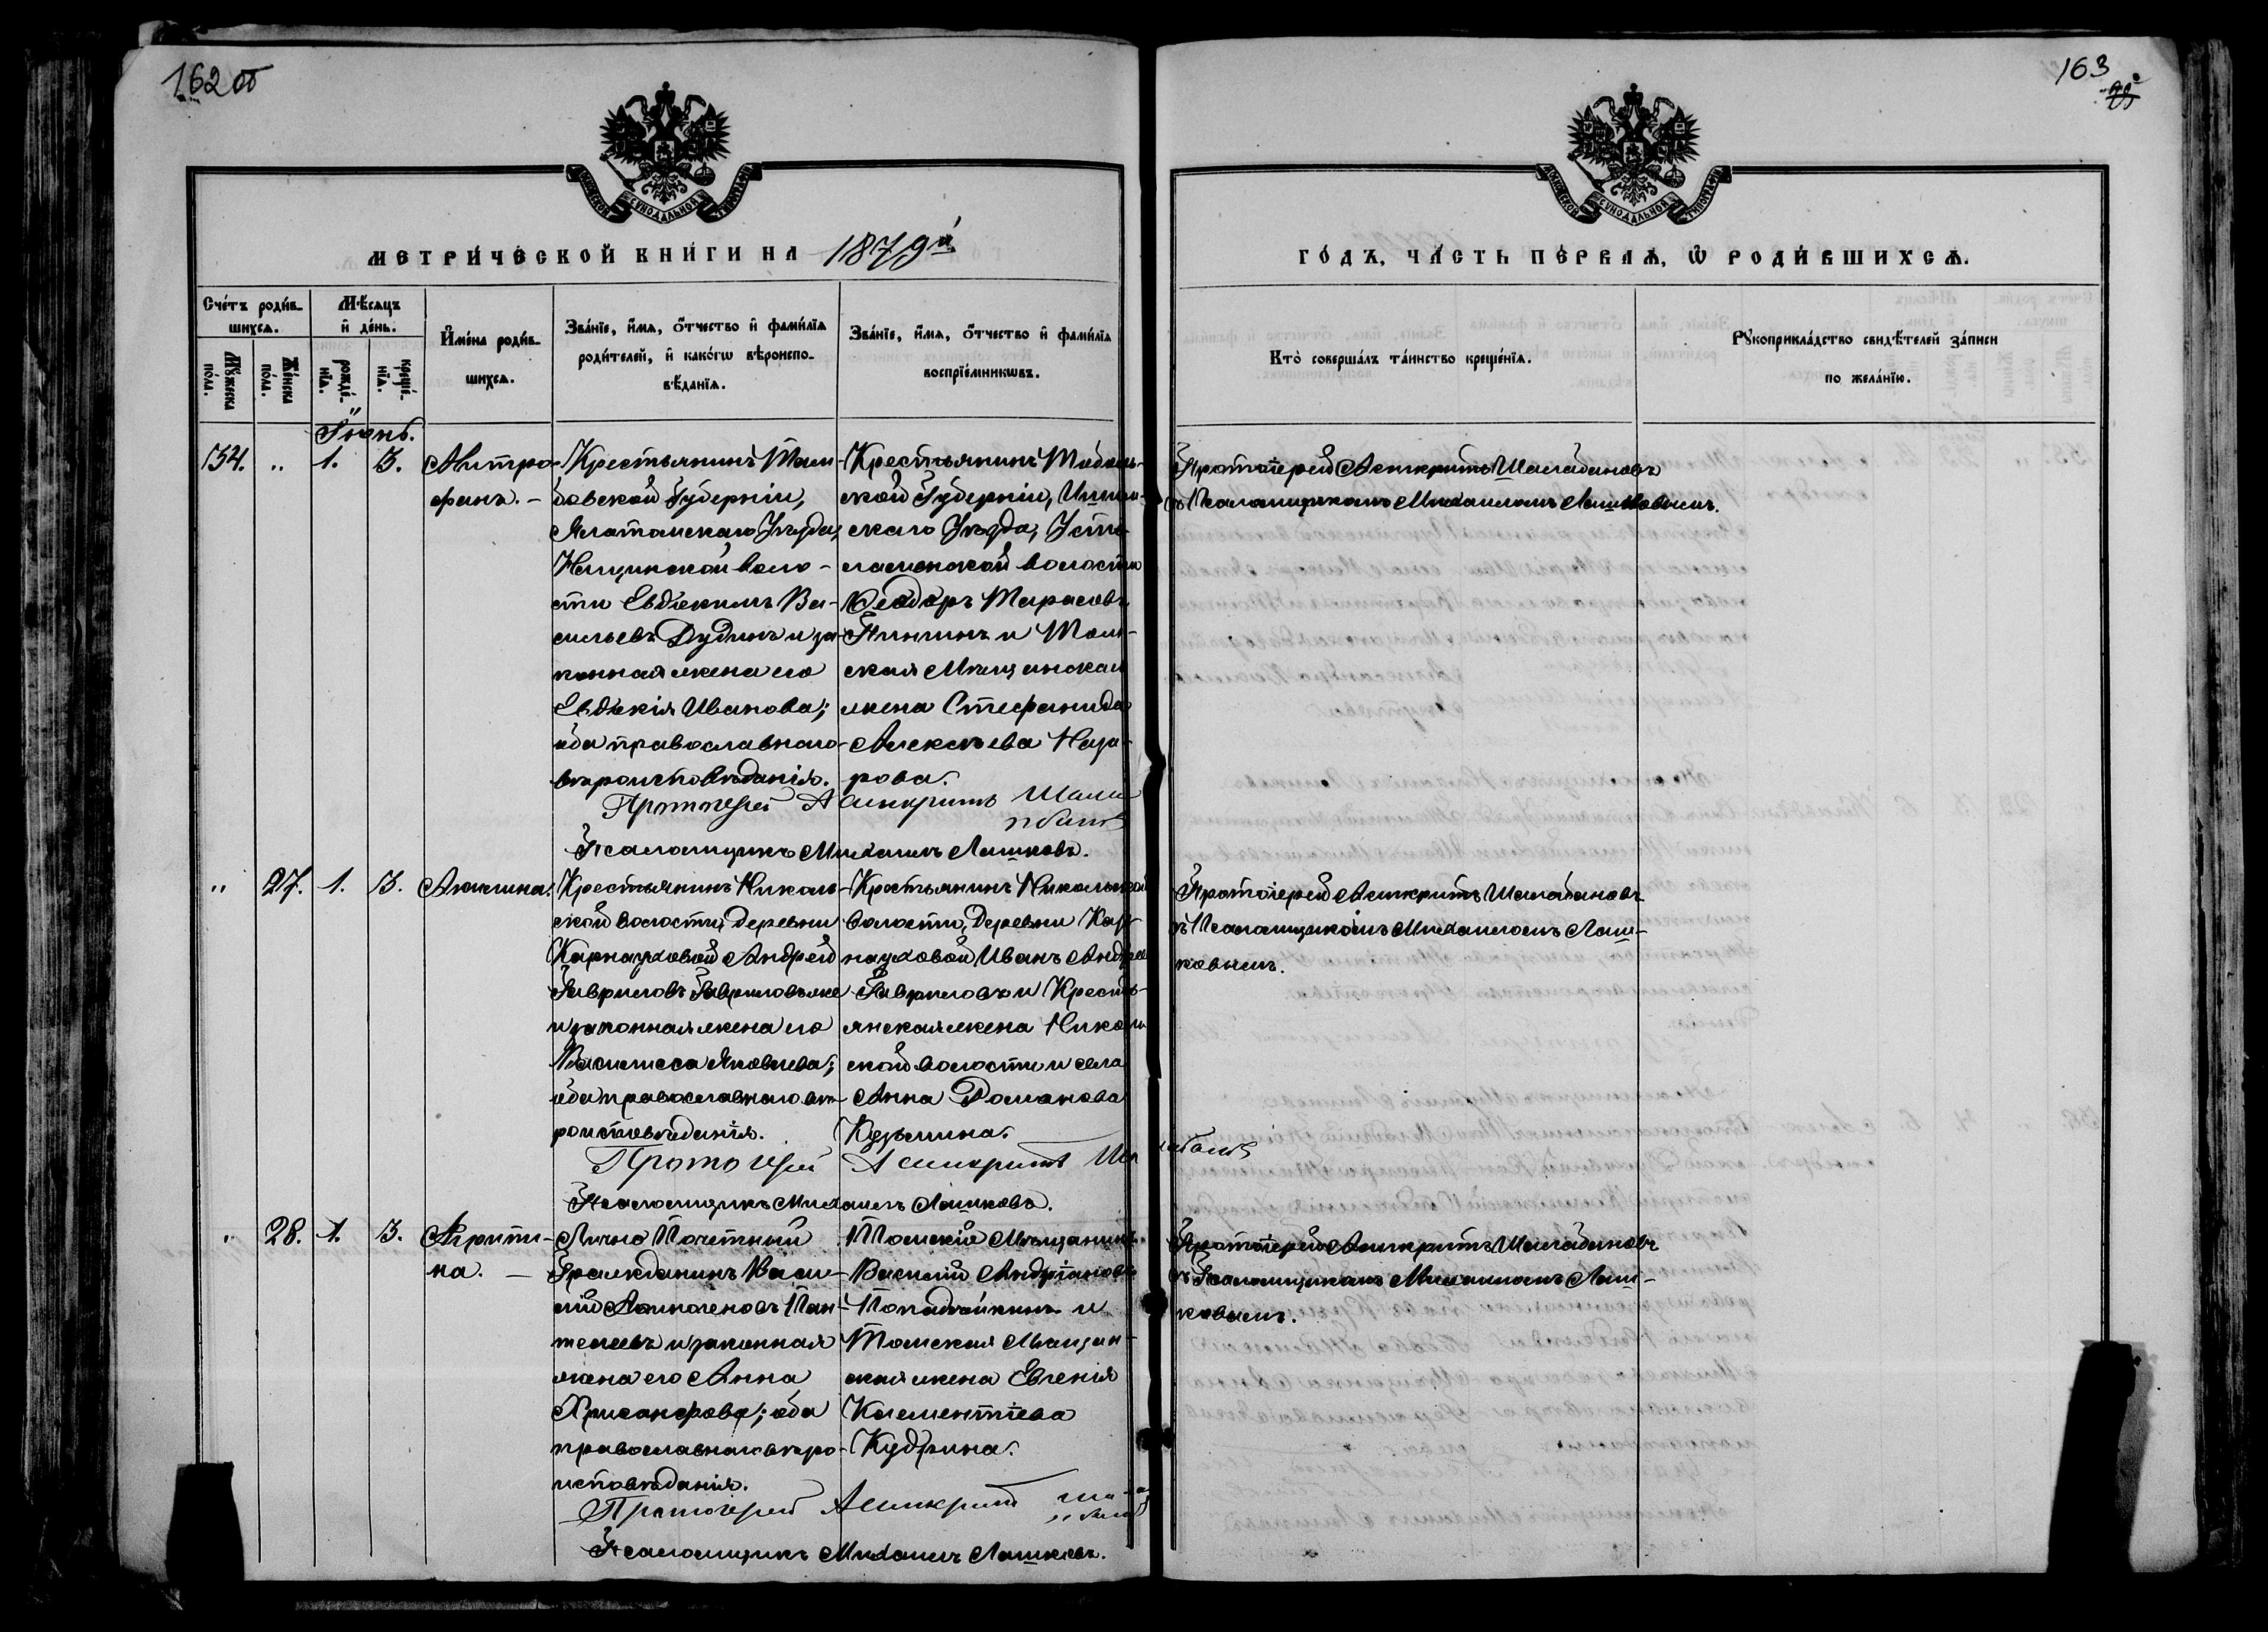 162 об
163
МОСКОВСКОЙ СѴНОДАЛЬНОЙ ТИПОГРАФІИ
МОСКОВСКОЙ СѴНОДАЛЬНОЙ ТИПОГРАФІИ
МЕТРИ́ЧЕСКОЙ КНИ́ГИ НА 1879й
ГО́ДЪ, ЧА́СТЬ ПЕ́РВАѦ, Ѽ РОДИ́ВШИХСѦ.
Сче́тъ роди́в-
шихсѧ.
Мꙋ́жеска по́ла.
Же́нска по́ла.
Мѣ́сяцъ
и҆ де́нь.
рожде́-нїѧ.
креще́-нїѧ.
И҆мена̀ роди́в-
шихсѧ.
Зва́нїе, и҆́мѧ, о҆́тчество и҆ фами́лїѧ
роди́телей, и҆ како́гѡ вѣроиспо-
вѣ́данїѧ.
Зва́нїе, и҆́мѧ, о҆́тчество и҆ фами́лїѧ
воспрїе́мникѡвъ.
Кто̀ соверша́лъ та́инство креще́нїѧ.
Рꙋкоприкла́дство свидѣ́телей за́писи
по жела́нїю.
Іюнь.
134. „ 1. 3.
Митро-
фанъ. –
Крестьянинъ Там-
бовской Губерніи,
Елатомскаго Уѣзда,
воло-
сти Евдокимъ Ва-
сильевъ Дудинъ и за-
конная жена его
Евдокія Иванова;
оба православнаго
вѣроисповѣданія.
Крестьянинъ Тоболь-
ской Губерніи, Ишим-
скаго Уѣзда, Усть-
ламенской волости
Ѳеодоръ Тарасовъ
и Том-
ская Мѣщанская
жена Стефанида
Алексѣева Наза-
рова.
Протоіерей Асинкритъ Шала-
бановъ
Псаломщикъ Михаилъ Лашковъ.
Протоіерей Асинкритъ Шалабановъ
съ Псаломщикомъ Михаиломъ Лашковымъ.
„ 27. 1. 3.
Акилина.
Крестьянинъ Николь-
ской волости, деревни
Карнауховой Андрей
Гавриловъ Гавриловъ же
и законная жена его
Василисса Яковлева;
оба православнаго вѣ-
роисповѣданія.
Крестьянинъ Никольской
волости, Деревни Кар-
науховой Иванъ Андреевъ
Гавриловъ и Кресть-
янская жена Николь-
ской волости и села
Анна Романова
Кузьмина.
Протоіерей Асинкритъ Шалабановъ
Псаломщикъ Михаилъ Лашковъ.
Протоіерей Асинкритъ Шалабановъ
съ Псаломщикомъ Михаиломъ Лаш-
ковымъ.
„ 28. 1. 3.
Агрипи-
на. –
Лично Почетный
Гражданинъ Васи-
лій Пан-
телеевъ и законная
жена его Анна
Хрисанфова; оба
православнаго вѣро-
исповѣданія.
Томскій Мѣщанинъ
Василій Андріановъ
Попадейкинъ и
Томская Мѣщан-
ская жена Евгенія
Климентіева
Кудрина.
Протоіерей Асинкритъ
Псаломщикъ Михаилъ Лашковъ.
Протоіерей Асинкритъ Шалабановъ
съ Псаломщикомъ Михаиломъ Лаш-
ковымъ.